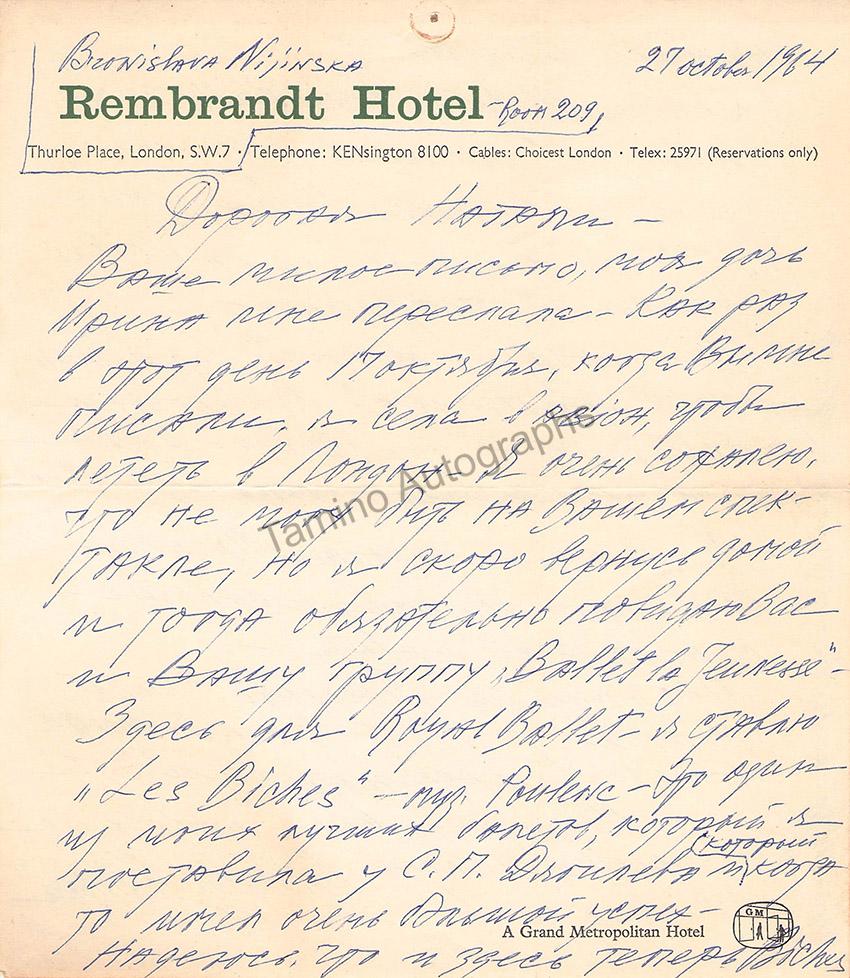 Bronislava Nijinska
27 october 1964
Rembrandt Hotel - Room 209,
Thurloe Place, London, S.W.7 · Telephone: KENsington 8100 · Cables: Choicest London · Telex: 25971 (Reservations only)
Дорогая Натали —
Ваше милое письмо, моя дочь
Ирина мне переслала - Как раз
в этот день 17 октября, когда Вы мне
писали, я села в авион, чтобы
лететь в Лондон - Я очень сожалею,
что не могу быть на Вашем спек-
такле, но я скоро вернусь домой
и тогда обязательно повидаю Вас
и Вашу группу „Ballet la Jeunesse" -
Здесь для Royal Ballet - я ставлю
„Les Biches" - муз. Poulenc - Это один
из моих лучших балетов, который я
поставила у С. П. Дягилева и (который когда
то имел очень большой успех -
Надеюсь, что и здесь теперь Biches
A Grand Metropolitan Hotel
GM
Tamino Autographs